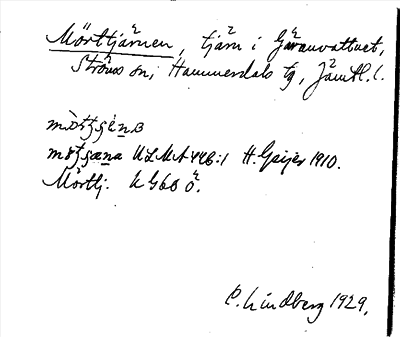 Mörttjärnen, tjärn i Gäranvattnet,
Ströms sn, Hammerdals tg, Jämtl. l.
ULMA 446:1 H. Geijer 1910.
Mörttj. KG 60 ö.
C. Lindberg 1929.